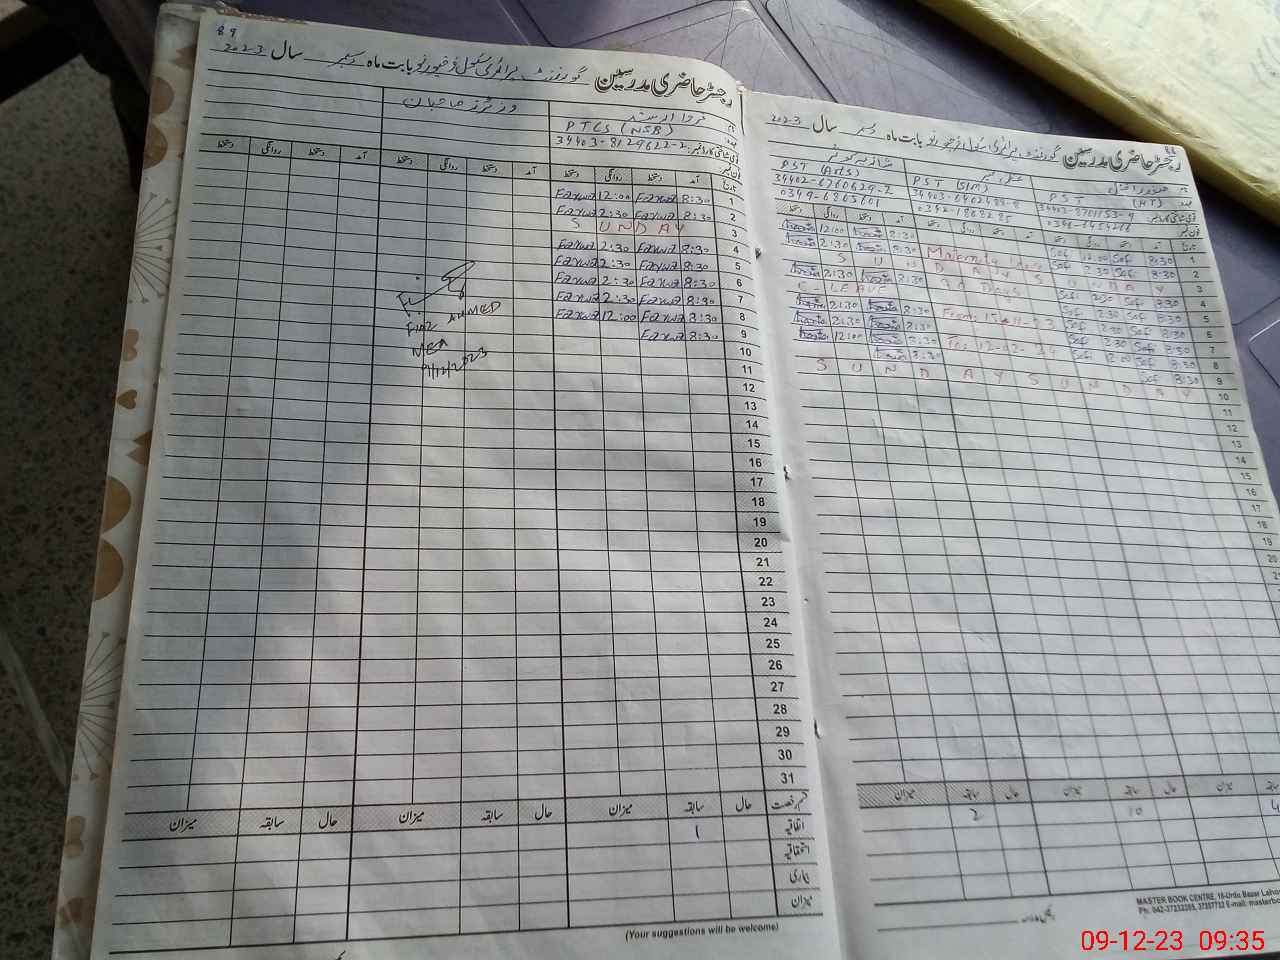 رجسٹر حاضری مدرسین گورنمنٹ پرائمری سکول بابت ماہ دسمبر سال 2023
86
نام
عہدہ
PST (HT)
PST (SIM)
PST (Arts)
قومی شناختی کارڈ نمبر
34402-6760629-2
فون نمبر
0349-6865601
تاریخ آمد دستخط روانگی دستخط آمد دستخط روانگی دستخط آمد دستخط روانگی دستخط
1 8:30 Saf 12:00 Saf Maternity 8:30 12:00
2 8:30 Saf 2:30 Saf 8:30 2:30
3 S U N D A Y S U N D A Y
4 8:30 Saf 2:30 Saf 90 Days 8:30 2:30
5 8:30 Saf 2:30 Saf C-LEAVE
6 8:30 Saf 2:30 Saf From 15-11-23 8:30 2:30
7 8:30 Saf 2:30 Saf 8:30 2:30
8 8:30 Saf 12:00 Saf To: 12-02-24 8:30 12:00
9 8:30 Saf 8:30
10 S U N D A Y S U N D A Y
11
12
13
14
15
16
17
18
19
20
حال سابقہ میزان حال سابقہ میزان
10 2
MASTER BOOK CENTRE, 16-Urdu Bazar Lahor
Ph: 042-37232265, 37357732 E-mail: masterbo
89
رجسٹر حاضری مدرسین گورنمنٹ پرائمری سکول بابت ماہ دسمبر سال 2023
نام وزیٹرز صاحبان
عہدہ PTCS (NSB)
قومی شناختی کارڈ نمبر: 34403-8129622-2
فون نمبر
تاریخ آمد دستخط روانگی دستخط آمد دستخط روانگی دستخط آمد دستخط روانگی دستخط
1 8:30 Farwa 12:00 Farwa
2 8:30 Farwa 2:30 Farwa
3 S U N D A Y
4 8:30 Farwa 2:30 Farwa
5 8:30 Farwa 2:30 Farwa
6 8:30 Farwa 2:30 Farwa
7 8:30 Farwa 2:30 Farwa
8 8:30 Farwa 12:00 Farwa
9 8:30 Farwa
AHMED
MEA
9/12/2023
10
11
12
13
14
15
16
17
18
19
20
21
22
23
24
25
26
27
28
29
30
31
قسم رخصت حال سابقہ میزان حال سابقہ میزان حال سابقہ میزان
اتفاقیہ 1
استحقاقیہ
بیماری
میزان
(Your suggestions will be welcome)
09-12-23 09:35